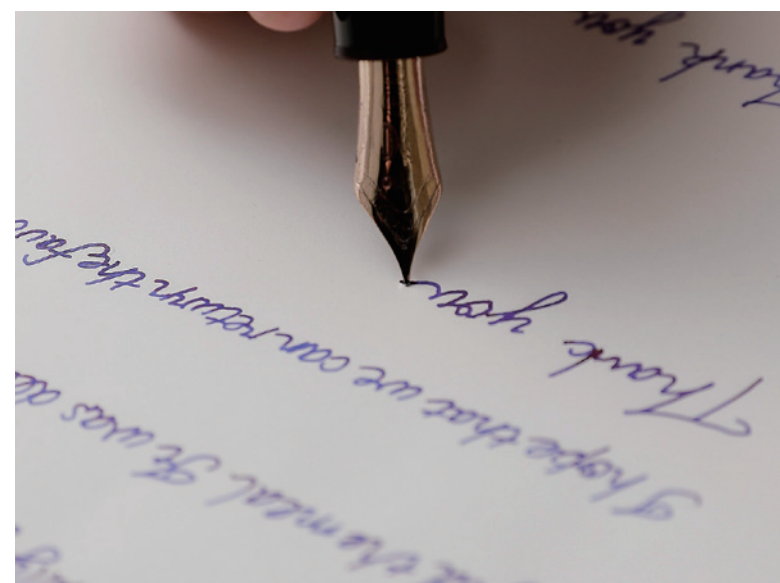 the meal. It was
I hope that we can return the
Thank you
Thank you